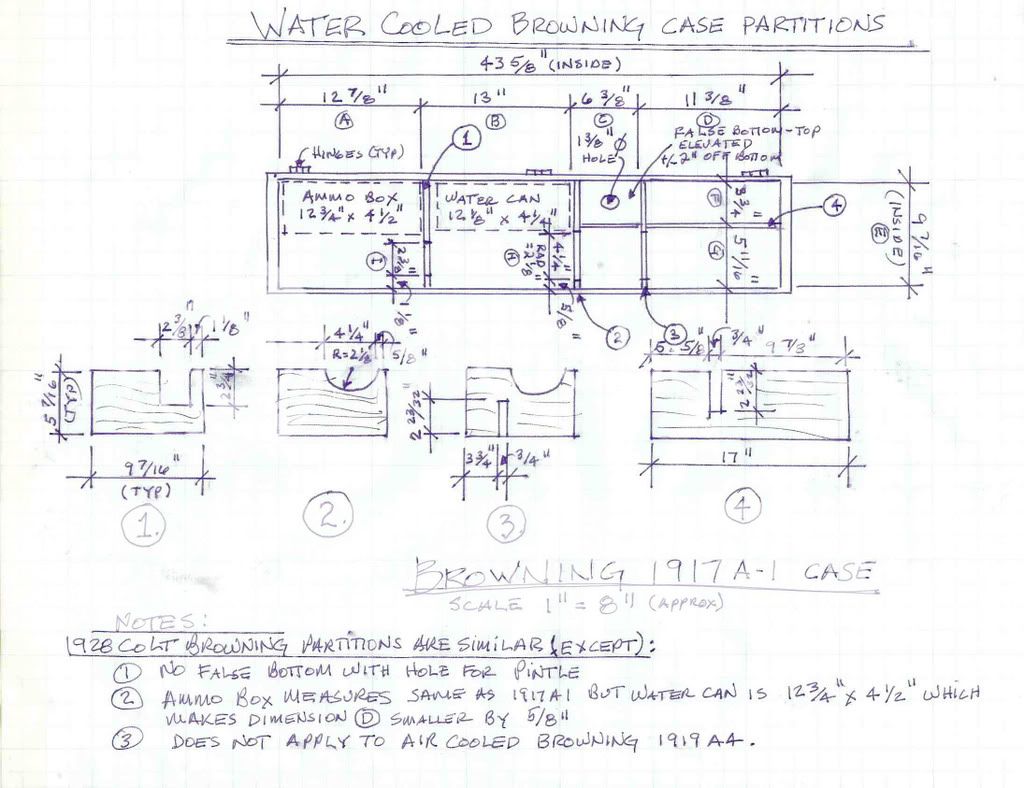 WATER COOLED BROWNING CASE PARTITIONS
43 5/8" (INSIDE)
12 7/8" 13" 6 3/8" 11 3/8"
A B C D
1
HINGES (TYP)
1 3/8" Ø
HOLE
FALSE BOTTOM-TOP
ELEVATED
+/- 2" OFF BOTTOM
AMMO BOX
12 3/4" X 4 1/2"
WATER CAN
12 1/8" X 4 1/4"
F 3 3/4"
4
9 7/16"
(INSIDE)
E
I 2 3/8"
1 1/8"
H RAD = 2 1/8
4 1/4"
5/8"
G 5 11/16"
2
3
2 3/8" 1 1/8"
5 7/16"
(TYP)
2 3/4"
9 7/16"
(TYP)
1.
4 1/4"
R=2 1/8
5/8"
2.
2 23/32"
3 3/4" 3/4"
3.
5 5/8" 3/4" 9 7/3"
2 23/32"
17"
4
BROWNING 1917 A-1 CASE
SCALE 1" = 8" (APPROX)
NOTES:
1928 COLT BROWNING PARTITIONS ARE SIMILAR (EXCEPT):
1 NO FALSE BOTTOM WITH HOLE FOR PINTLE
2 AMMO BOX MEASURES SAME AS 1917A1 BUT WATER CAN IS 12 3/4" X 4 1/2" WHICH
MAKES DIMENSION D SMALLER BY 5/8"
3 DOES NOT APPLY TO AIR COOLED BROWNING 1919 A4.